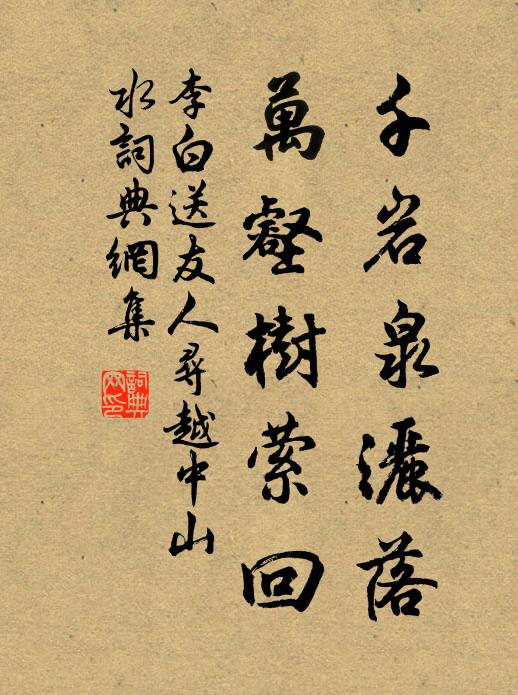 千岩泉灑落
萬壑樹縈回
李白送友人尋越中山
水詞典網集
詞典
网印